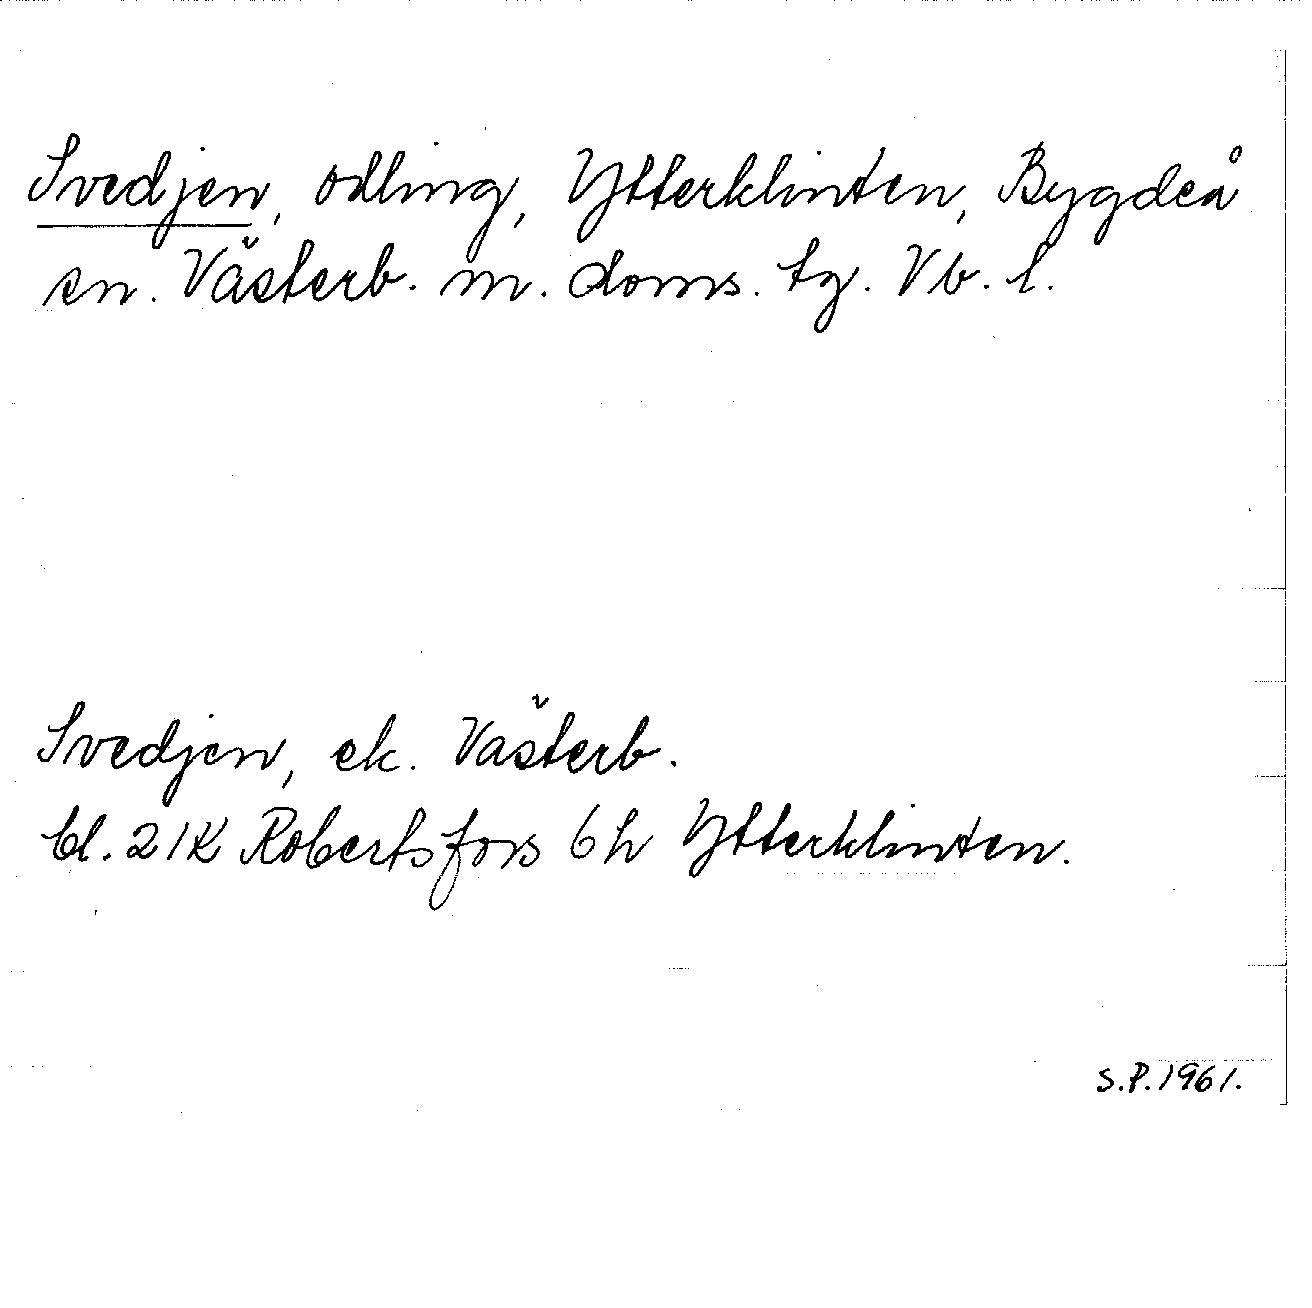 Svedjen, odling, Ytterklinten, Bygdeå
sn. Västerb. m. doms. tg. Vb. l.
Svedjen, ek. Västerb.
bl. 21K Robertsfors 6h Ytterklinten.
S.P. 1961.